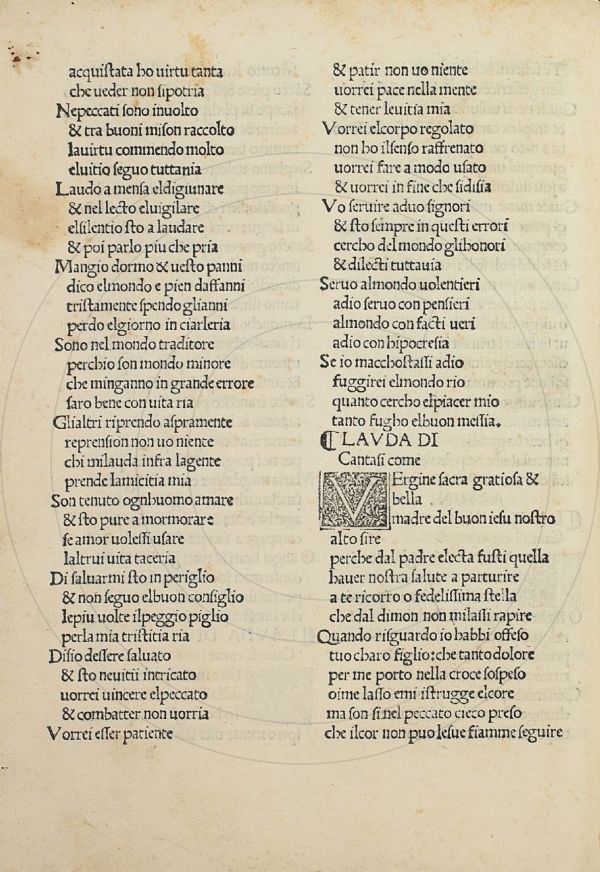 acquistata ho uirtu tanta
che ueder non sipotria
Nepeccati sono inuolto
& tra buoni mison raccolto
lauirtu commendo molto
eluitio seguo tuttania
Laudo a mensa eldigiunare
& nel lecto eluigilare
elsilentio sto a laudare
& poi parlo piu che pria
Mangio dormo & uesto panni
dico elmondo e pien daffanni
tristamente spendo glianni
perdo elgiorno in ciarleria
Sono nel mondo traditore
perchio son mondo minore
che minganno in grande errore
saro bene con uita ria
Glialtri riprendo aspramente
reprension non uo niente
chi milauda infra lagente
prende lamicitia mia
Son tenuto ognhuomo amare
& sto pure a mormorare
se amor uolessi usare
laltrui uita taceria
Di saluarmi sto in periglio
& non seguo elbuon consiglio
lepiu uolte ilpeggio piglio
perla mia tristitia ria
Disio dessere saluato
& sto neuitii intricato
uorrei uincere elpeccato
& combatter non uorria
Vorrei esser patiente
& patir non uo niente
uorrei pace nella mente
& tener leuitia mia
Vorrei elcorpo regolato
non ho ilsenso raffrenato
uorrei fare a modo usato
& uorrei in fine che sidisia
Vo seruire aduo signori
& sto sempre in questi errori
cercho del mondo glihonori
& dilecti tuttauia
Seruo almondo uolentieri
adio seruo con pensieri
almondo con facti ueri
adio con hipocresia
Se io macchostassi adio
fuggirei elmondo rio
quanto cercho elpiacer mio
tanto fugho elbuon messia.
⸿LAVDA DI
Cantasi come
VErgine sacra gratiosa &
bella
madre del buon iesu nostro
alto sire
perche dal padre electa fusti quella
hauer nostra salute a parturire
a te ricorro o fedelissima stella
che dal dimon non milassi rapire
Quando risguardo io habbi offeso
tuo charo figlio: che tanto dolore
per me porto nella croce sospeso
oime lasso emi istrugge elcore
ma son si nel peccato cieco preso
che ilcor non puo lesue fiamme seguire